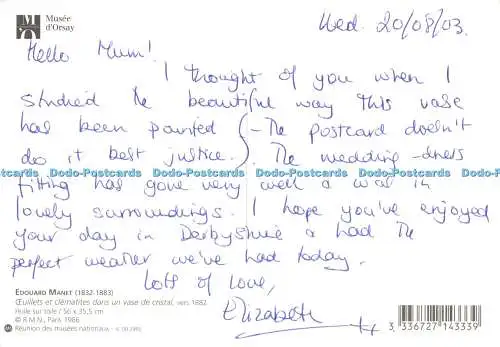 Musée
d'Orsay
Wed. 20/08/03.
Hello Mum!
I thought of you when I
studied the beautiful way this vase
has been painted - The postcard doesn't
do it best justice. The wedding-dress
fitting has gone very well & was in
lovely surroundings. I hope you've enjoyed
your day in Derbyshire & had the
perfect weather we've had today.
Lots of love,
Elizabeth
EDOUARD MANET (1832-1883)
Œuillets et clématites dans un vase de cristal, vers 1882
Huile sur toile / 56 x 35,5 cm
© R.M.N., Paris 1986
Réunion des musées nationaux
3 336727 143339
Dodo-Postcards Dodo-Postcards Dodo-Postcards Dodo-Postcards